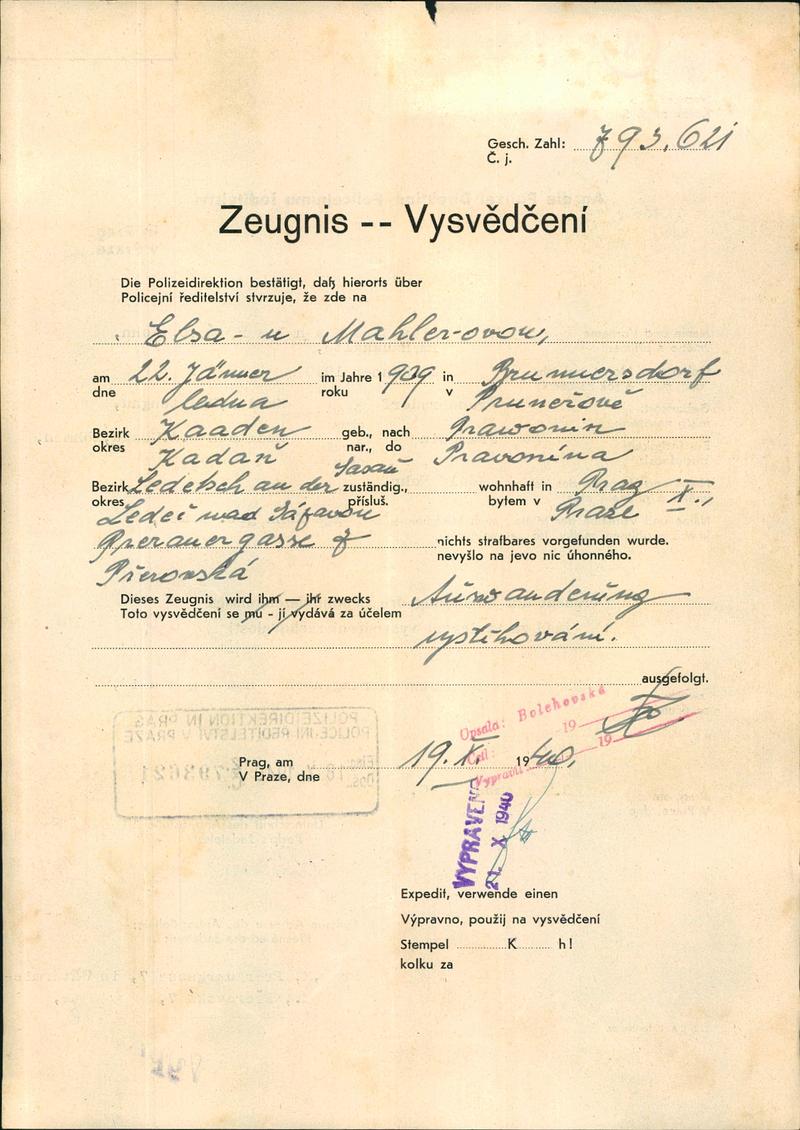 Gesch. Zahl: 793.621
Č. j.
Zeugnis -- Vysvědčení
Die Polizeidirektion bestätigt, daß hierorts über
Policejní ředitelství stvrzuje, že zde na
Elsa-u Mahler-ovou,
am 22. Jänner im Jahre 1909 in Brunnersdorf
dne ledna roku v Pruneřově
Bezirk Kaaden geb., nach Prawonin
okres Kadaň nar., do Pravonína
Sasau
Bezirk Ledetsch an der zuständig., wohnhaft in Prag X.,
okres Ledeč nad Sázavou přísluš. bytem v Praze
Prerauergasse 7 nichts strafbares vorgefunden wurde.
Přerovská nevyšlo na jevo nic úhonného.
Dieses Zeugnis wird ihm — ihr zwecks Auswanderung
Toto vysvědčení se mu - jí vydává za účelem vystěhování.
ausgefolgt.
Opsala: Bolehovská
19
Čtl: 19
Vypravil
POLIZEIDIREKTION IN PRAG
POLICEJNÍ ŘEDITELSTVÍ V PRAZE
793621
Prag, am 19. X. 1940,
V Praze, dne
VYPRAVENO
21. X. 1940
Expedit, verwende einen
Výpravno, použij na vysvědčení
Stempel K h!
kolku za